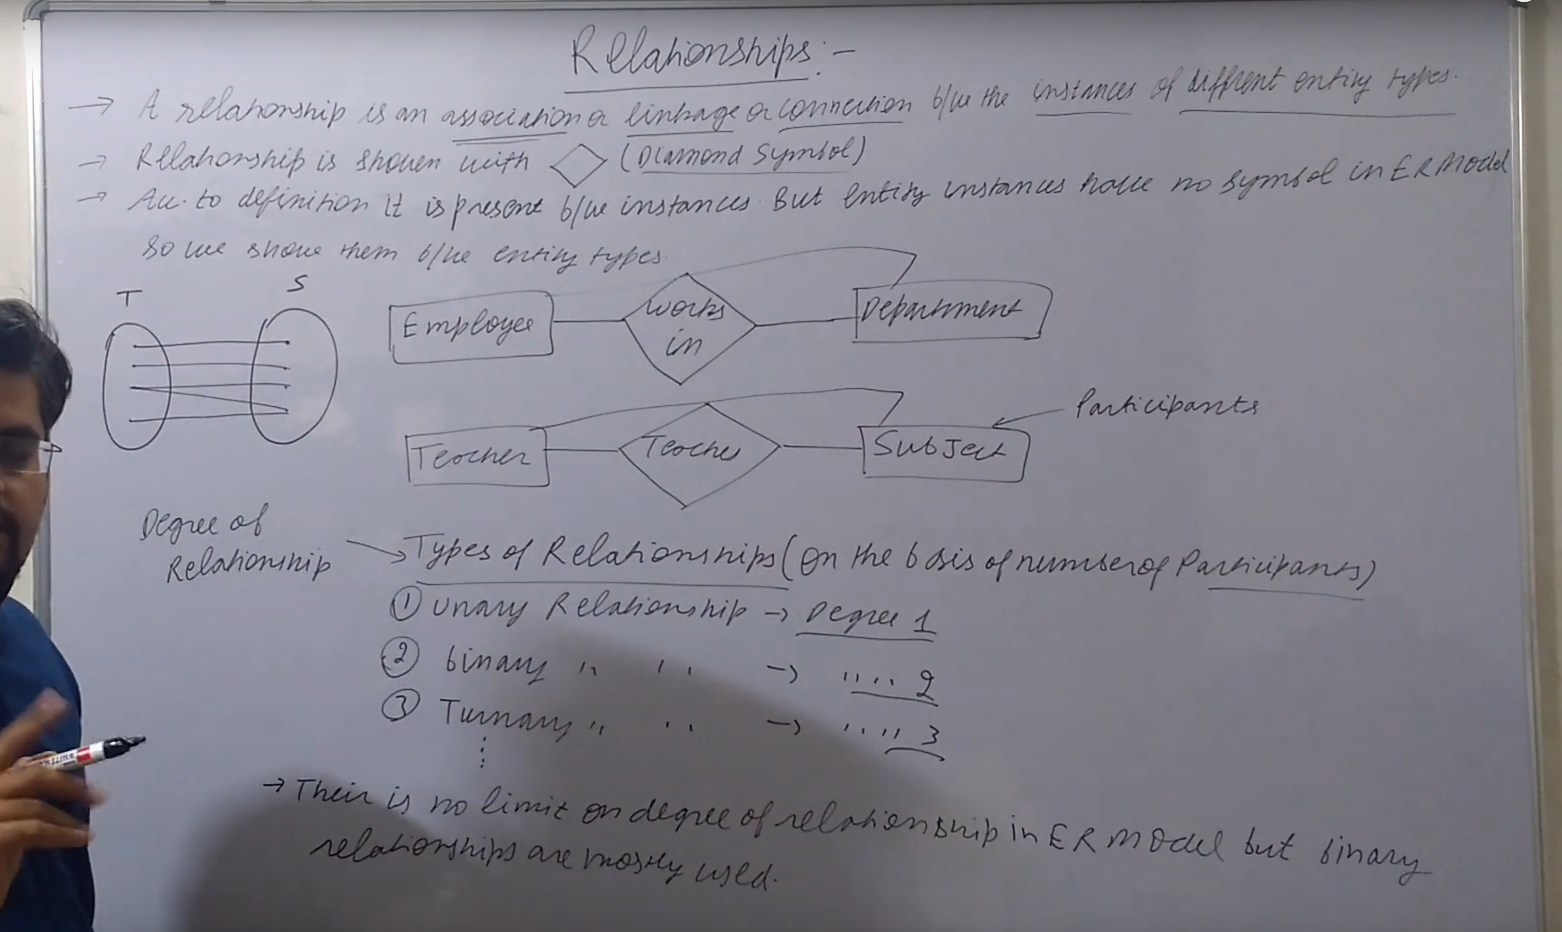 Relationships:-
→ A relationship is an association or linkage or connection b/w the instances of diffrent entity types.
→ Relationship is shown with ◇ (Diamond Symbol)
→ Acc. to definition it is present b/w instances. But entity instances have no symbol in ER Model
so we show them b/w entity types.
T S
Employee works in Department
Participants
Teacher Teaches Subject
Degree of Relationship
→ Types of Relationships (on the basis of number of Participants)
① Unary Relationship → Degree 1
② binary " " → " " 2
③ Turnary " " → " " 3
→ Their is no limit on degree of relationship in ER Model but binary
relationships are mostly used.